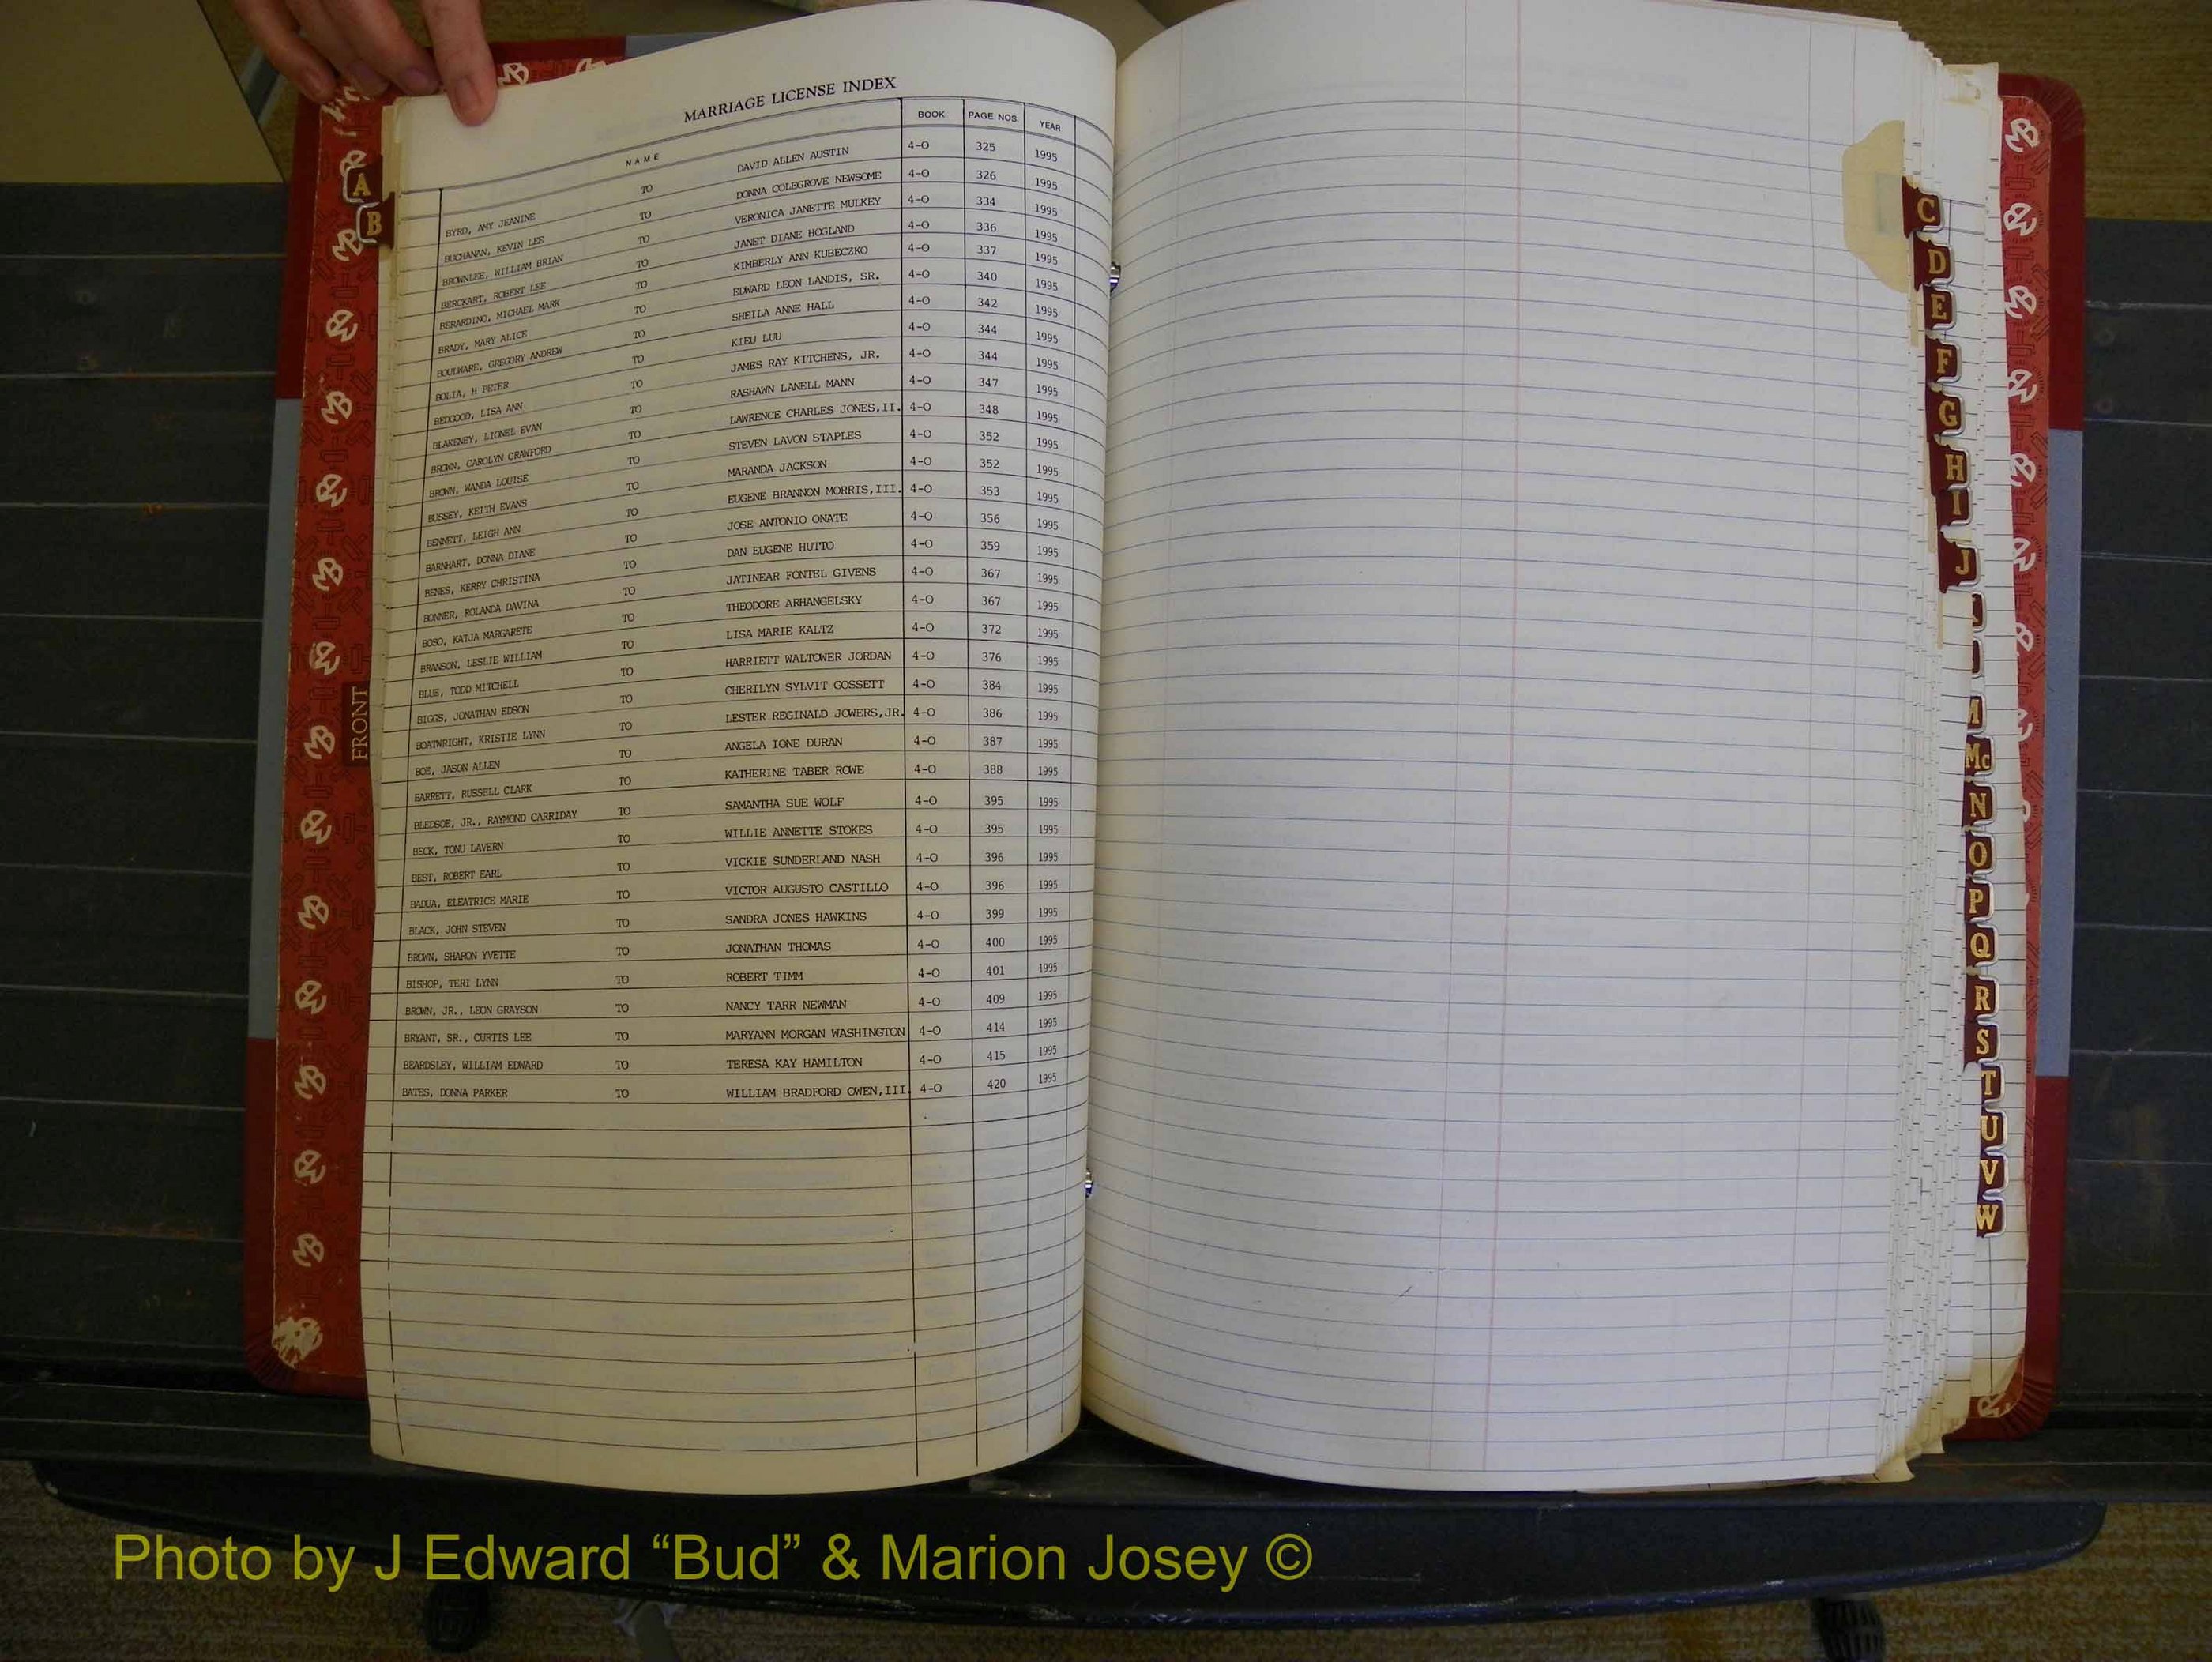 MARRIAGE LICENSE INDEX
NAME BOOK PAGE NOS. YEAR
BYRD, AMY JEANINE TO DAVID ALLEN AUSTIN 4-O 325 1995
BUCHANAN, KEVIN LEE TO DONNA COLEGROVE NEWSOME 4-O 326 1995
BROWNLEE, WILLIAM BRIAN TO VERONICA JANETTE MULKEY 4-O 334 1995
BERCKART, ROBERT LEE TO JANET DIANE HOGLAND 4-O 336 1995
BERARDINO, MICHAEL MARK TO KIMBERLY ANN KUBECZKO 4-O 337 1995
BRADY, MARY ALICE TO EDWARD LEON LANDIS, SR. 4-O 340 1995
BOULWARE, GREGORY ANDREW TO SHEILA ANNE HALL 4-O 342 1995
BOLIA, H PETER TO KIEU LUU 4-O 344 1995
BEDGOOD, LISA ANN TO JAMES RAY KITCHENS, JR. 4-O 344 1995
BLAKENEY, LIONEL EVAN TO RASHAWN LANELL MANN 4-O 347 1995
BROWN, CAROLYN CRAWFORD TO LAWRENCE CHARLES JONES,II. 4-O 348 1995
BROWN, WANDA LOUISE TO STEVEN LAVON STAPLES 4-O 352 1995
BUSSEY, KEITH EVANS TO MARANDA JACKSON 4-O 352 1995
BENNETT, LEIGH ANN TO EUGENE BRANNON MORRIS,III. 4-O 353 1995
BARNHART, DONNA DIANE TO JOSE ANTONIO ONATE 4-O 356 1995
BENES, KERRY CHRISTINA TO DAN EUGENE HUTTO 4-O 359 1995
BONNER, ROLANDA DAVINA TO JATINEAR FONTEL GIVENS 4-O 367 1995
BOSO, KATJA MARGARETE TO THEODORE ARHANGELSKY 4-O 367 1995
BRANSON, LESLIE WILLIAM TO LISA MARIE KALTZ 4-O 372 1995
BLUE, TODD MITCHELL TO HARRIETT WALTOWER JORDAN 4-O 376 1995
BIGGS, JONATHAN EDSON TO CHERILYN SYLVIT GOSSETT 4-O 384 1995
BOATWRIGHT, KRISTIE LYNN TO LESTER REGINALD JOWERS,JR. 4-O 386 1995
BOE, JASON ALLEN TO ANGELA IONE DURAN 4-O 387 1995
BARRETT, RUSSELL CLARK TO KATHERINE TABER ROWE 4-O 388 1995
BLEDSOE, JR., RAYMOND CARRIDAY TO SAMANTHA SUE WOLF 4-O 395 1995
BECK, TONU LAVERN TO WILLIE ANNETTE STOKES 4-O 395 1995
BEST, ROBERT EARL TO VICKIE SUNDERLAND NASH 4-O 396 1995
BADUA, ELEATRICE MARIE TO VICTOR AUGUSTO CASTILLO 4-O 396 1995
BLACK, JOHN STEVEN TO SANDRA JONES HAWKINS 4-O 399 1995
BROWN, SHARON YVETTE TO JONATHAN THOMAS 4-O 400 1995
BISHOP, TERI LYNN TO ROBERT TIMM 4-O 401 1995
BROWN, JR., LEON GRAYSON TO NANCY TARR NEWMAN 4-O 409 1995
BRYANT, SR., CURTIS LEE TO MARYANN MORGAN WASHINGTON 4-O 414 1995
BEARDSLEY, WILLIAM EDWARD TO TERESA KAY HAMILTON 4-O 415 1995
BATES, DONNA PARKER TO WILLIAM BRADFORD OWEN,III. 4-O 420 1995
A
B
FRONT
C
D
E
F
G
H
I
J
M
Mc
N
O
P
Q
R
S
T
U
V
W
Photo by J Edward “Bud” & Marion Josey ©